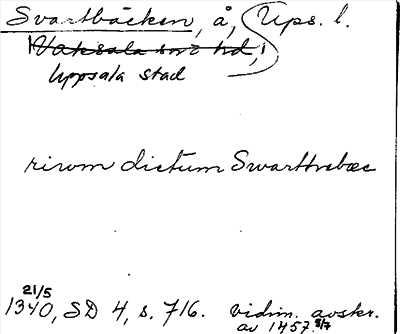 Svartbäcken, å, Ups. l.
Vaksala sn o hd,
Uppsala stad
rivom dictum Swarthvbæc
21/5
1340, SD 4, s. 716. vidim. avskr.
av 1457 5/7